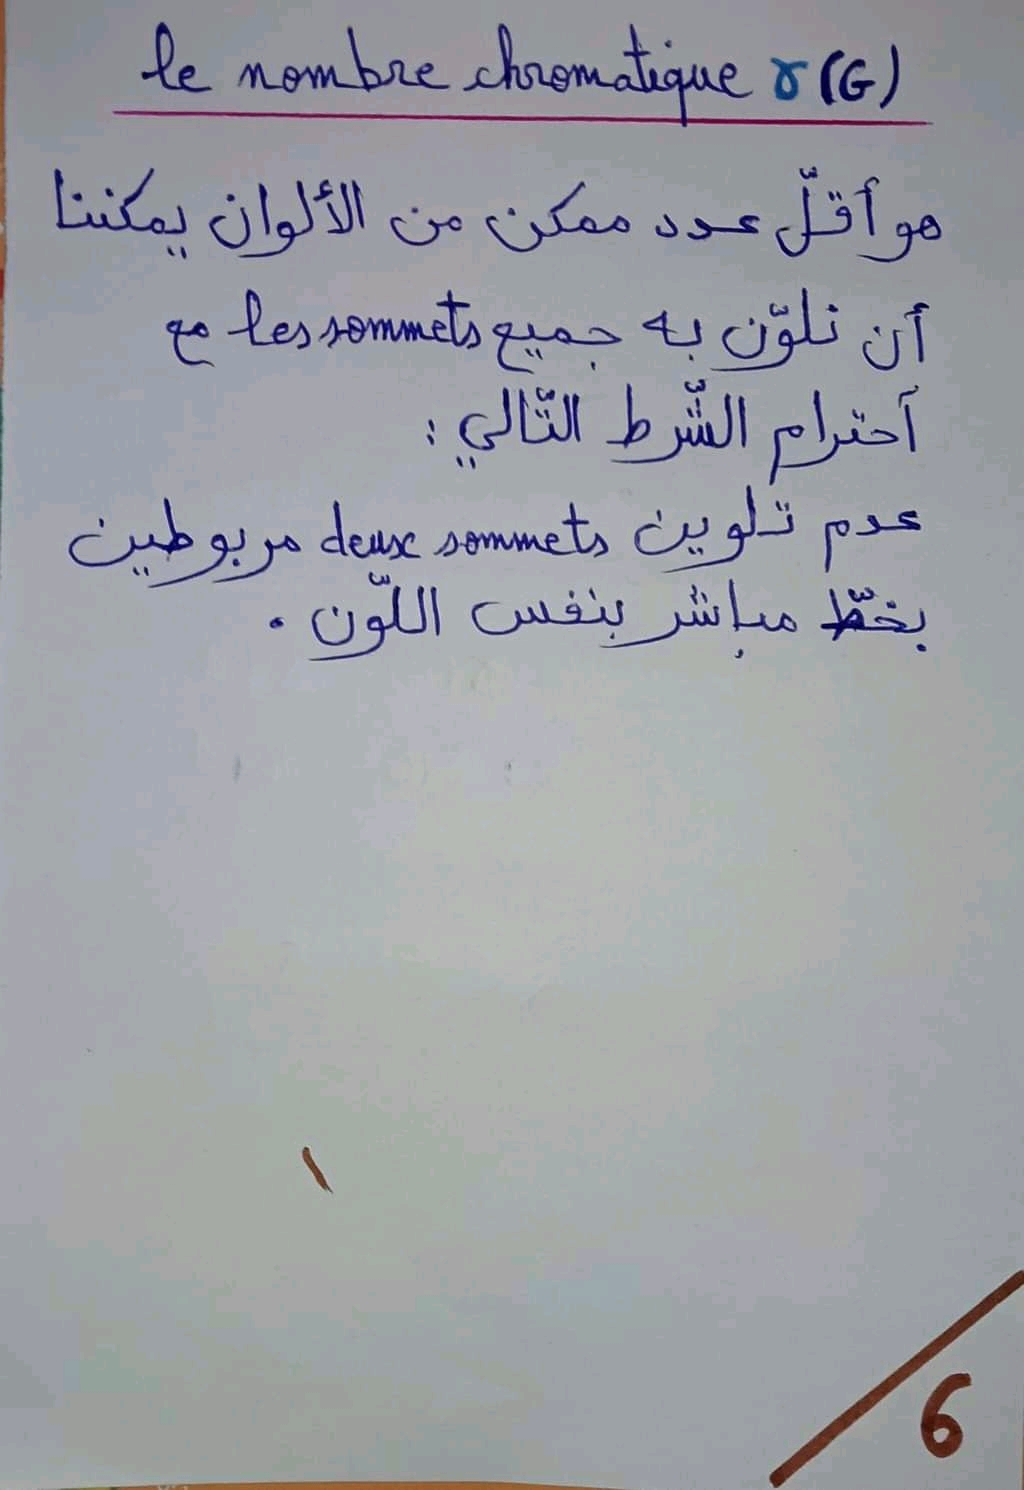 le nombre chromatique γ(G)
هو أقلّ عدد ممكن من الألوان يمكننا
أن نلوّن به جميع les sommets مع
أحترام الشّرط التّالي :
عدم تلوين deux sommets مربوطين
بخطّ مباشر بنفس اللّون .
6